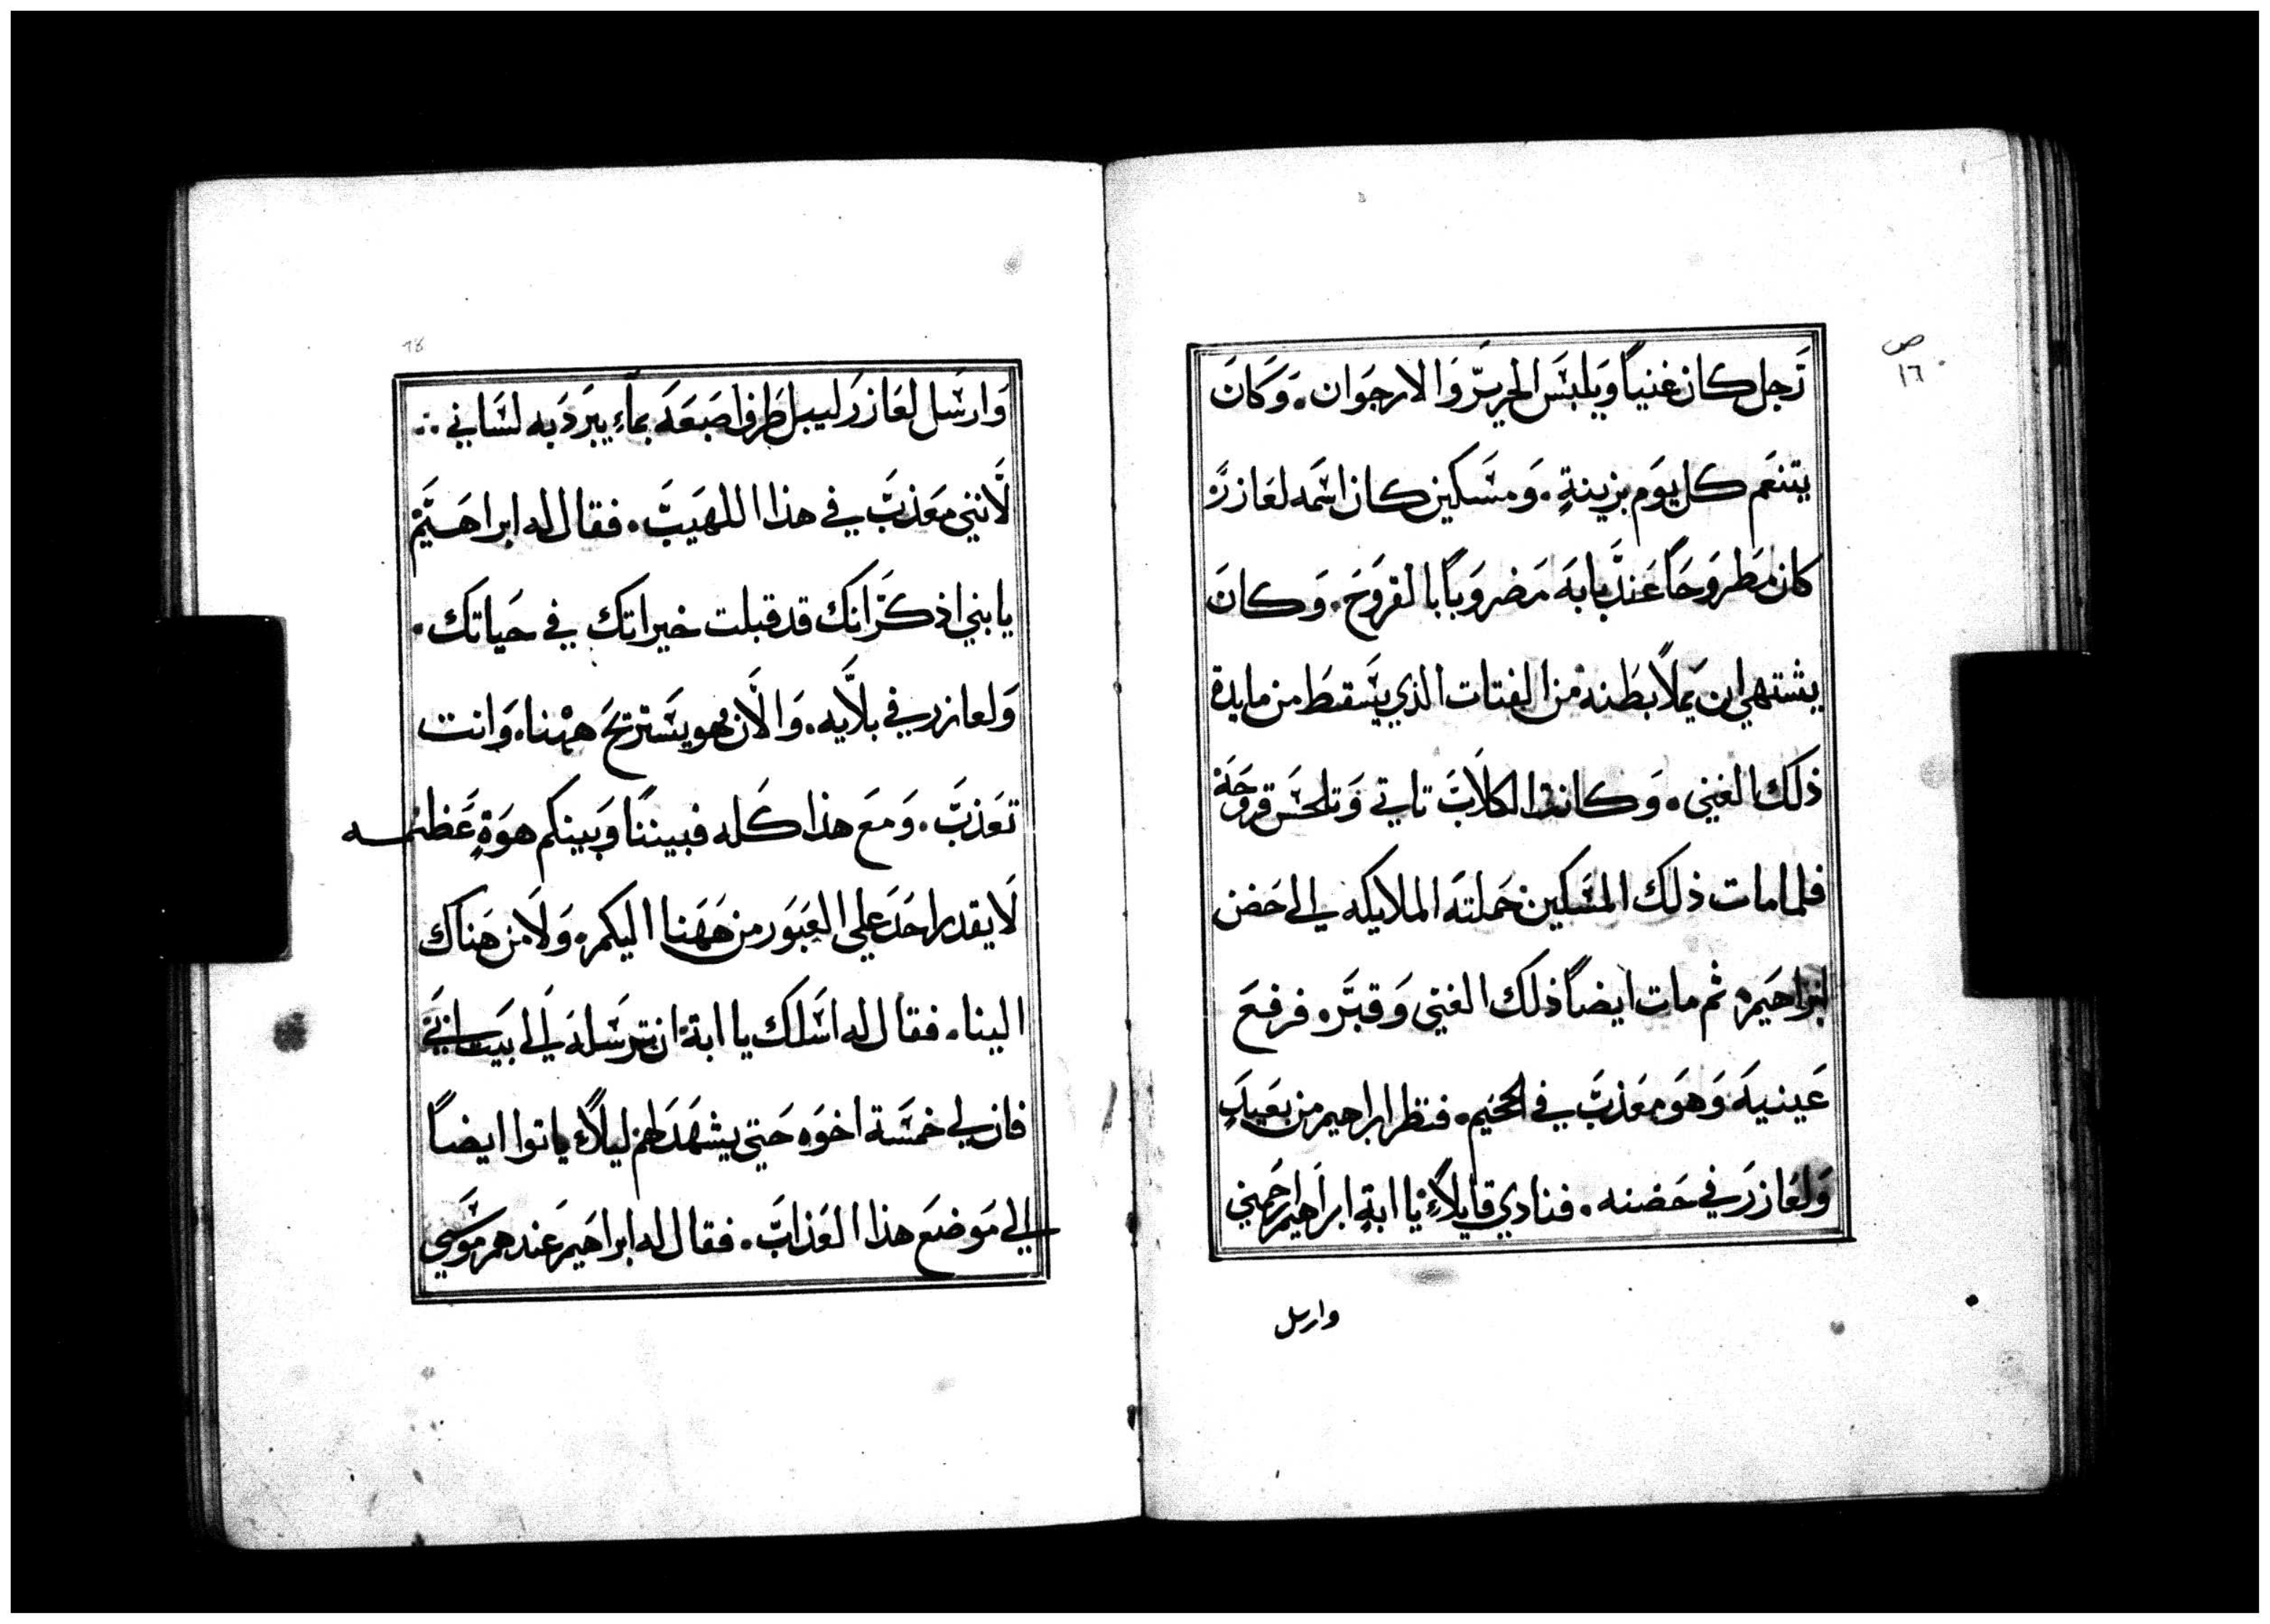 ص
١٦
رَجل كان غنياً وَيلبَس الحرير وَالارجوَان. وَكَانَ
يتنعَم كل يوَم بزينةٍ. وَمسَكين كان اسمَه لعَازرَ
كان مَطروَحَاً عَندَ بابهَ مَضروَباً بالقروَحَ. وَكانَ
يشتهي ان يملاً بطَنه من الفتات الذي يسَقطَ من مايدة
ذلكَ الغني. وَكانت الكلابَ تاتي وَتلحسَ قروَحَهَ
فلما مات ذلكَ المسَكين حَملتهَ الملايكه الي حَضن
ابراهَيم. ثم مات ايضاً ذلكَ الغني وَقبَر. فرفعَ
عَينيهَ وَهوَ معَذبَ في الجحيم. فنظر ابراهيم من بعَيد
وَلعَازرَ في حَضنه. فنادي قايلاً يا ابةِ ابراهَيم ارحَمني
وارسل
وَارسَل لعَازرَ ليبل طَرف اصَبعَهَ بماءِ يبَردَ به لسَاني
لَانني معَذبَ في هذا اللهَيبَ. فقال له ابراهَيم
يا بني اذكرَ انكَ قد قبلت خيراتكَ في حَياتكَ.
وَلعازر في بلاَيه. وَالاَن فهو يسَتريحَ ههنا. وَانت
تعَذبَ. وَمعَ هذا كَله فبيننَا وَبينكَم هوَةٍ عَظيمه
لَا يقدر احَدَ علي العَبوَر من هَهَنا اليكم. وَلَا من هَناكَ
الينا. فقال له اسَلكَ يا ابة ان ترسَلهَ الي بيَت ابي
فان لي خمسَة اخوَه حَتي يشهَدَ لهم ليلاً ياتوا ايضاً
الي موَضعَ هذا العَذابَ. فقال له ابراهَيم عَندهم موَسي